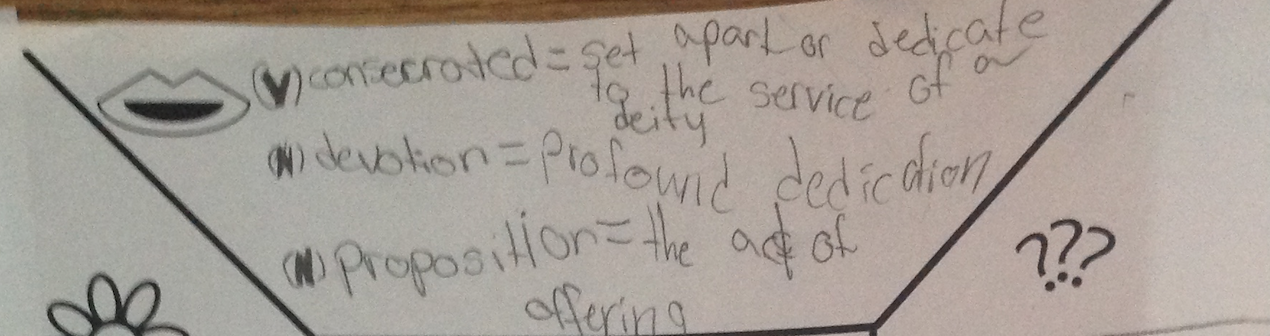 (V) consecrated = set apart or dedicate
to the service of a
deity
(N) devotion = Profound dedication
(N) proposition = the act of
offering
???